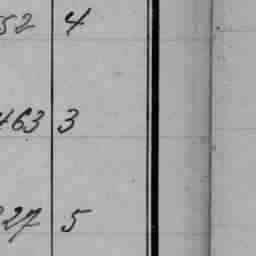 52 4
463 3
227 5